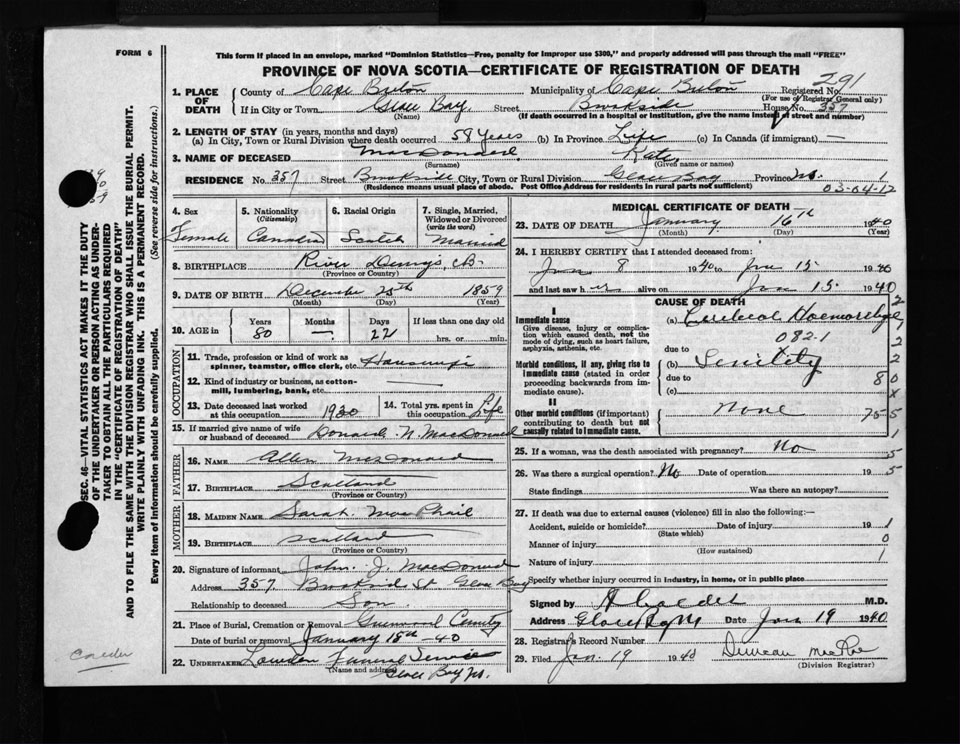 FORM 6
This form if placed in an envelope, marked "Dominion Statistics—Free, penalty for improper use $300," and properly addressed will pass through the mail "FREE"
PROVINCE OF NOVA SCOTIA—CERTIFICATE OF REGISTRATION OF DEATH
291
1. PLACE OF DEATH
County of Cape Breton Municipality of Cape Breton Registered No.
(For use of Registrar General only)
If in City or Town Glace Bay Street Brookside House No. 357
(Name) (If death occurred in a hospital or institution, give the name instead of street and number)
2. LENGTH OF STAY (in years, months and days)
(a) In City, Town or Rural Division where death occurred 58 years (b) In Province Life (c) In Canada (if immigrant) —
3. NAME OF DECEASED MacDonald Kate
(Surname) (Given name or names)
RESIDENCE No. 357 Street Brookside City, Town or Rural Division Glace Bay Province N.S. 1
(Residence means usual place of abode. Post Office Address for residents in rural parts not sufficient)
03-04-12
4. Sex Female
5. Nationality (Citizenship) Canadian
6. Racial Origin Scotch
7. Single, Married, Widowed or Divorced (write the word) Married
8. BIRTHPLACE River Denys, C.B.
(Province or Country)
9. DATE OF BIRTH December 25th 1859
(Month) (Day) (Year)
10. AGE in Years 80 Months — Days 22 If less than one day old
hrs. or min.
OCCUPATION
11. Trade, profession or kind of work as spinner, teamster, office clerk, etc.
12. Kind of industry or business, as cotton-mill, lumbering, bank, etc. —
13. Date deceased last worked at this occupation 1930
14. Total yrs. spent in this occupation Life
15. If married give name of wife or husband of deceased Donald N. MacDonald
FATHER
16. NAME Allen MacDonald
17. BIRTHPLACE Scotland
(Province or Country)
MOTHER
18. MAIDEN NAME Sarah MacPhail
19. BIRTHPLACE Scotland
(Province or Country)
20. Signature of informant John J. MacDonald
Address 357 Brookside St Glace Bay
Relationship to deceased Son
21. Place of Burial, Cremation or Removal
Date of burial or removal January 18th - 40
22. UNDERTAKER Funeral Service
(Name and address) Glace Bay N.S.
MEDICAL CERTIFICATE OF DEATH
23. DATE OF DEATH January 16th 1940
(Month) (Day) (Year)
24. I HEREBY CERTIFY that I attended deceased from:
Jan 8 1940 to Jan 15 1940
and last saw her alive on Jan 15 1940
CAUSE OF DEATH
I
Immediate cause
Give disease, injury or complication which caused death, not the mode of dying, such as heart failure, asphyxia, asthenia, etc.
(a) Cerebral Haemorrhage
082.1
due to
Morbid conditions, if any, giving rise to immediate cause (stated in order proceeding backwards from immediate).
(b) Senility
due to
(c)
II
Other morbid conditions (if important) contributing to death but not causally related to immediate cause.
None
25. If a woman, was the death associated with pregnancy? No
26. Was there a surgical operation? No Date of operation 19
State findings Was there an autopsy?
27. If death was due to external causes (violence) fill in also the following:—
Accident, suicide or homicide? Date of injury 19
(State which)
Manner of injury
(How sustained)
Nature of injury
Specify whether injury occurred in industry, in home, or in public place
Signed by M.D.
Address Glace Bay NS Date Jan 19 1940
28. Registrar's Record Number
29. Filed Jan. 19 1940 Duncan MacRae
(Division Registrar)
SEC. 46—VITAL STATISTICS ACT MAKES IT THE DUTY
OF THE UNDERTAKER OR PERSON ACTING AS UNDER-
TAKER TO OBTAIN ALL THE PARTICULARS REQUIRED
IN THE "CERTIFICATE OF REGISTRATION OF DEATH"
AND TO FILE THE SAME WITH THE DIVISION REGISTRAR WHO SHALL ISSUE THE BURIAL PERMIT.
WRITE PLAINLY WITH UNFADING INK. THIS IS A PERMANENT RECORD.
Every item of Information should be carefully supplied. (See reverse side for instructions.)